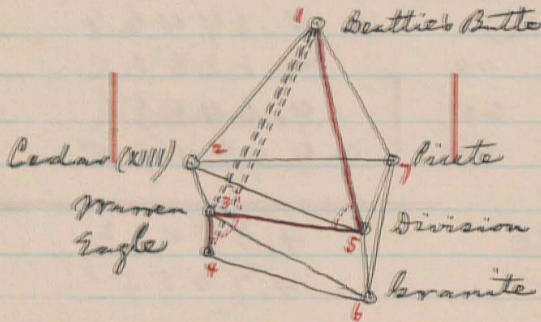 1 Beatties Butte
Cedar (XIII) 2
7 Piute
3
Eagle
4
5 Division
6 Granite